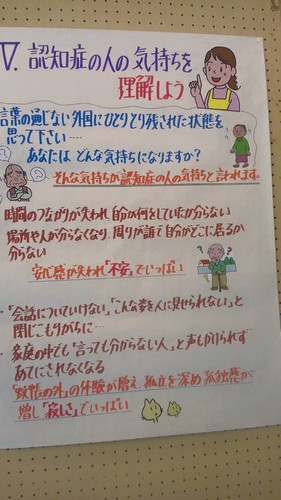 V. 認知症の人の気持ちを
理解しよう
言葉の通じない外国にひとりとり残された状態を
思って下さい……
あなたは どんな気持ちになりますか?
そんな気持ちが認知症の人の気持ちと言われます。
時間のつながりが失われ、自分が何をしていたか分らない
場所や人が分らなくなり、周りが誰で自分がどこに居るか
分らない
安心感が失われ「不安」でいっぱい
・「会話についていけない」「こんな姿を人に見せられない」と
閉じこもりがちに…
・家庭の中でも「言っても分からない人」と声もかけられず
あてにされなくなる
「蚊帳の外」の体験が増え 孤立を深め 孤独感が
増し「寂しさ」でいっぱい